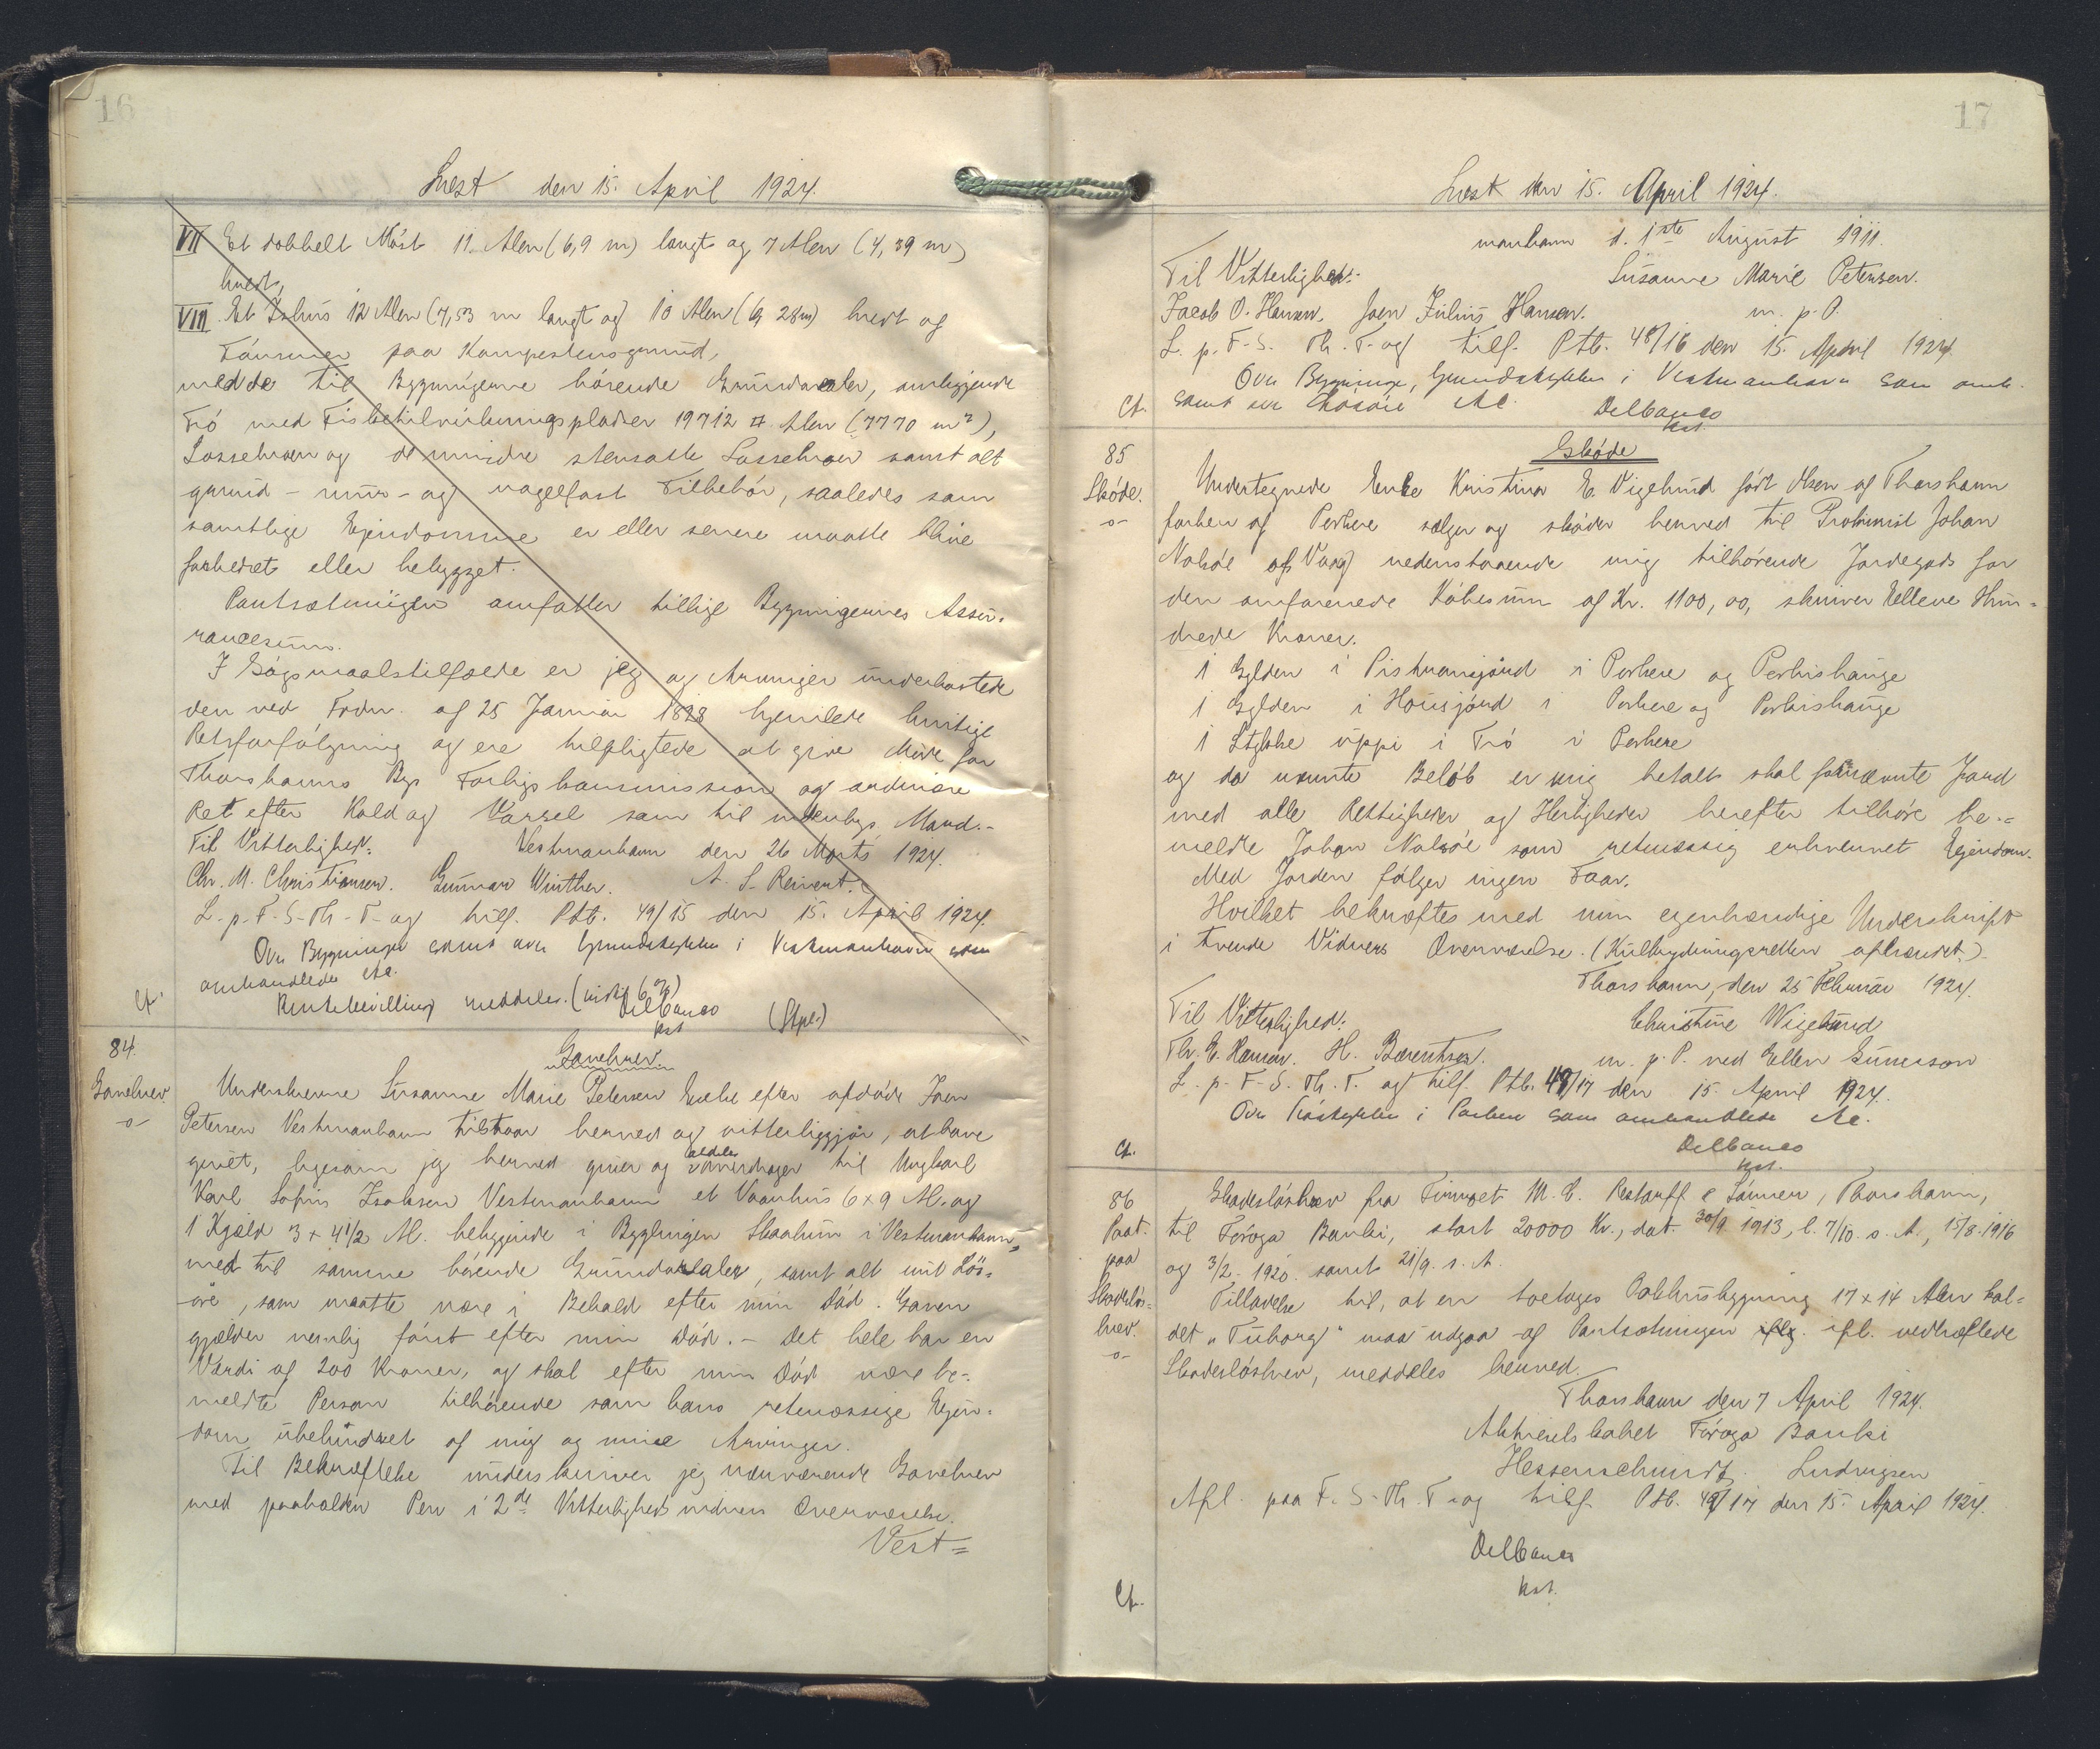 16
Læst den 15. April 1924.
VII Et dobbelt Nóst 11. Alen (6,9 m) langt og 7 Alen (4,39 m)
bredt,
VIII. Et Ishus 12 Alen (7,53 m langt og 10 Alen (6,28m) bredt af
Tømmer paa Kampestensgrund,
med de til Bygningerne hørende Grundarealer, omliggende
Trø med Fisketilvirkningspladser 19712 □ Alen (7770 m²),
Lossebroen og de mindre stensatte Lossebroer samt alt
grund- mur- og nagelfast Tilbehør, saaledes som
samtlige Ejendomme er eller senere maatte blive
forbedret eller bebygget.
Pantsætningen omfatter tillige Bygningernes Assu-
rancesum.
I Søgsmaalstilfælde er jeg og Arvinger underkastede
den ved Frdn. af 25 Januar 1828 hjemlede hurtige
Retsforfølgning og ere tilpligtede at give Møde for
Thorshavns Bys Forligskommission og ordinære
Ret efter Kald og Varsel som til indenbys Mand.-
Til Vitterlighed: Vestmanhavn den 26 Marts 1924.
Chr. M. Christiansen. Gunnar Winther. A. S. Reinert.
L. p. F-S-Th-T- og tilf. Ptb. 49/15 den 15. April 1924.
Ovr Bygninger samt ovr Grundstykker i Vestmanhavn som
omhandledes Ae.
Rentebevilling meddeles. (indtil 6%)
Ct. Delbanco (Stpl.)
kst
84. Gavebrev
Gavebrev Underskrevne Susanne Marie Petersen Enke efter afdøde Joen
-o- Petersen Vestmanhavn tilstaar herved og vitterliggjør, at have
givet, ligesom jeg herved giver og aldeles overdrager til Ungkarl
Karl Sofus Isaksen Vestmanhavn et Vaanhus 6 x 9 Al. og
1 Kjæld 3 x 4 1/2 Al. beliggende i Bygdingen Skaalum i Vestmanhavn,
med til samme hørende Grundarealer, samt alt mit Løs-
øre, som maatte være i Behold efter min Død. Gaven
gjælder nemlig først efter min Død.- Det hele har en
Værdi af 200 Kroner, og skal efter min Død være be-
meldte Person tilhørende som hans retmæssige Ejen-
dom ubehindret af mig og mine Arvinger.
Til Bekræftelse underskriver jeg nærværende Gavebrev
med paaholden Pen i 2de Vitterlighedsvidners Overværelse.
Vest=
17
Læst den 15. April 1924.
manhavn d. 1ste August 1911.
Til Vitterlighed: Susanne Marie Petersen.
Jacob O. Hansen. Joen Julius Hansen. m. p. P.
L. p. F-S. Th. T- og tilf. Ptb. 49/16 den 15. April 1924.
Ovr Bygninger, Grundstykker i Vestmanhavn som omh.
Ct. samt ovr Løsøre Ae. Delbanco
kst.
85 Skøde
Skøde. Undertegnede Enke Kristina E. Vigelund født Olsen af Thorshavn
-o- forhen af Porkere sælger og skøder herved til Probenist Johan
Nolsøe af Vaag nedenstaaende mig tilhørende Jordegods for
den omforenede Købesum af Kr. 1100,00, skriver Elleve Hun-
drede Kroner.
1 Gylden i Pistvansjørd i Porkere og Porkishauge
1 Gylden i Housjørd i Porkere og Porkishauge
1 Stykke uppi i Trø i Porkere
og da nævnte Beløb er mig betalt skal fornævnte Jord
med alle Rettigheder og Herligheder herefter tilhøre be-
meldte Johan Nolsøe som retmæssig erhvervet Ejendom.
Med Jorden følger ingen Faar.
Hvilket bekræftes med min egenhændige Underskrift
i tvende Vidners Overværelse. (Kulbrydningsretten afhændet.)
Thorshavn, den 25 Februar 1924.
Til Vitterlighed: Christine Wigelund
Th. E. Hansen. H. Berentsen. m. p. P. ved Ellen Simerson
L. p. F-S. Th. T. og tilf. Ptb. 49/17 den 15. April 1924.
Ovr Jordstykker i Porkere som omhandledes Ae.
Ct. Delbanco
kst.
86 Skadesløsbrev fra Firmaet M. C. Restorff & Sønner, Thorshavn,
Paat. til Føroya Banki, stort 20000 Kr., dat. 30/9 1913, l. 7/10. s. A., 15/8. 1916
paa og 3/2. 1920. samt 21/9. s. A.
Skadesløs= Tilladelse til, at en toetages Pakhusbygning 17 x 14 Alen kal-
brev. det "Tuborg" maa udgaa af Pantsætningen iflg. ifl. vedhæftede
-o- Skadesløsbrev, meddeles herved.
Thorshavn den 7 April 1924.
Aktieselskabet Føroya Banki
Hessenschmidt. Ludvigsen
Afl. paa F. S-Th. T- og tilf. Ptb. 49/17 den 15. April 1924.
Delbanco
Ct. kst.